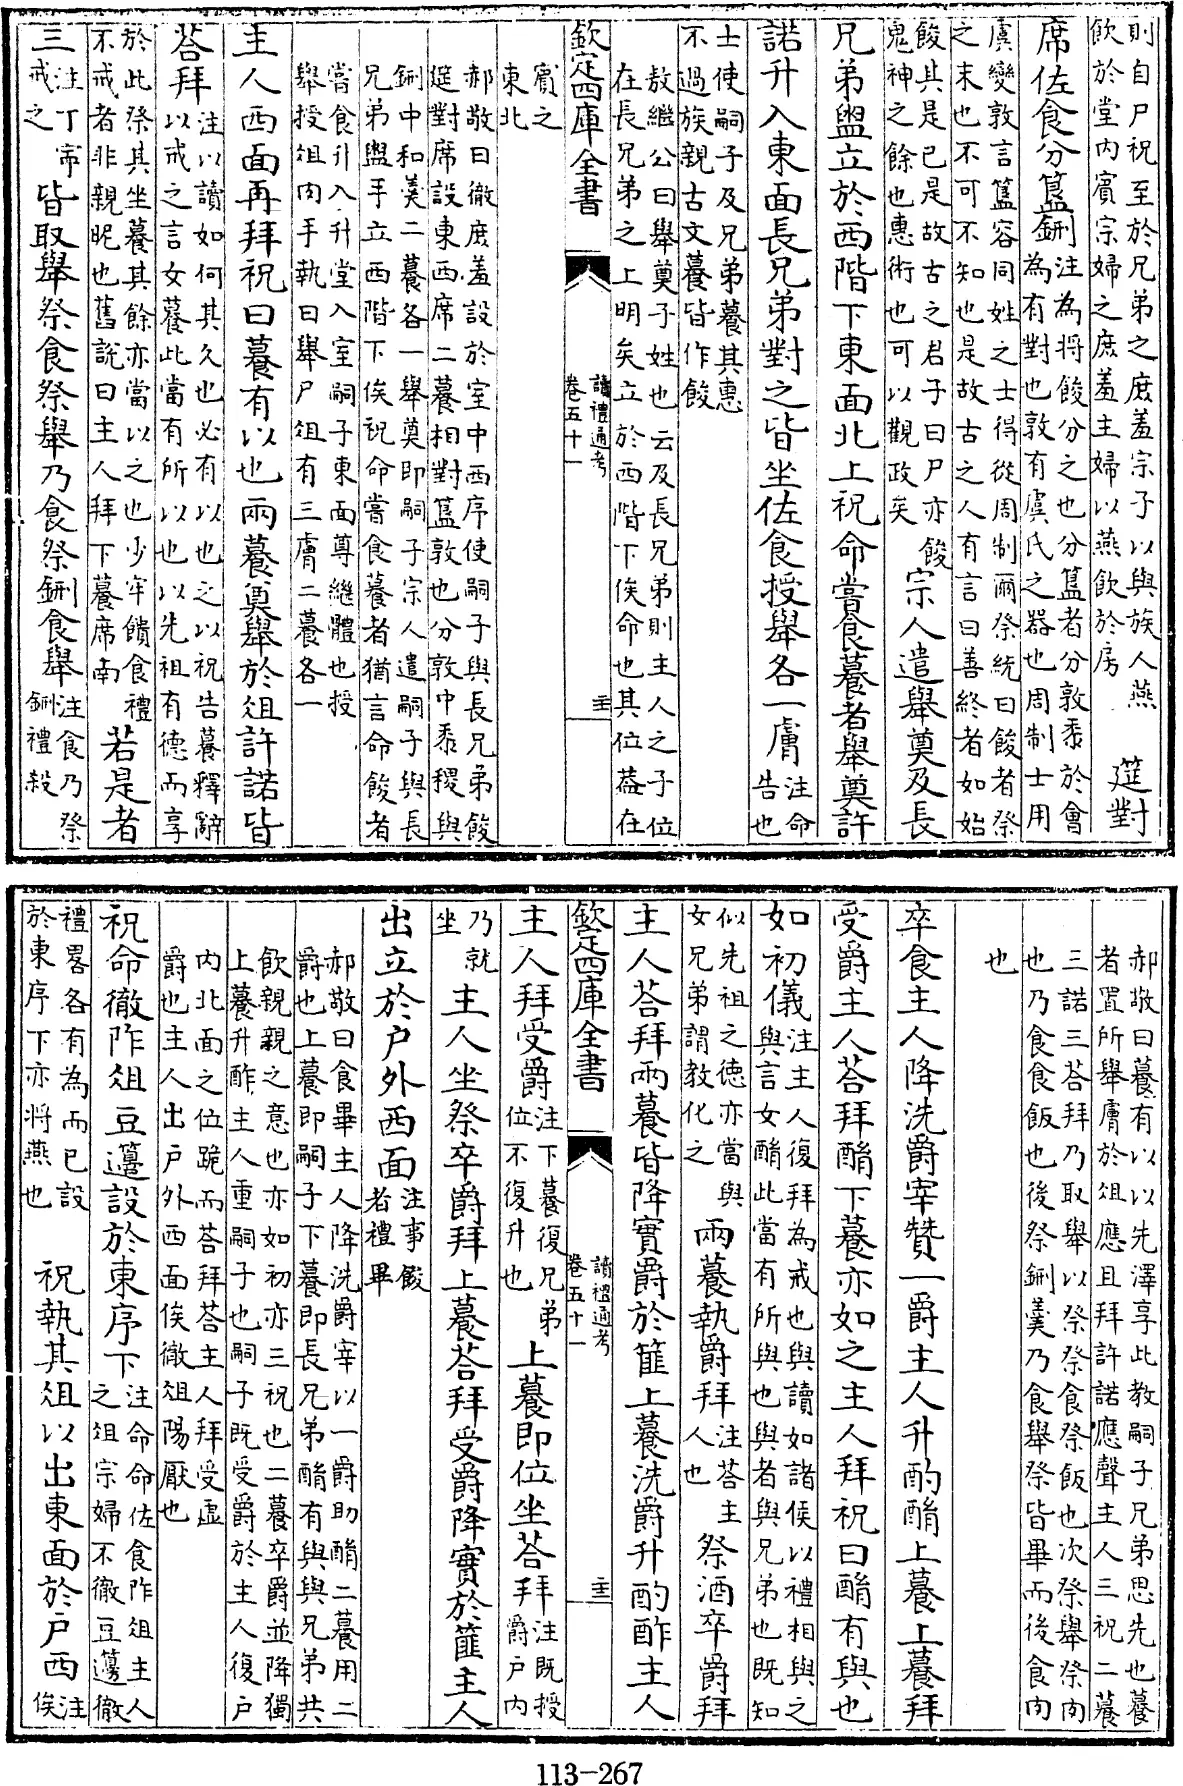 則自尸祝至於兄弟之庶羞宗子以與族人燕
飲於堂內賓宗婦之庶羞主婦以燕飲於房
筵對
席佐食分簋鉶
注為將餕分之也分簋者分敦黍於會
為有對也敦有虞氏之器也周制士用
虞變敦言簋容同姓之士得從周制爾祭統曰餕者祭
之末也不可不知也是故古之人有言曰善終者如始
餕其是已是故古之君子曰尸亦餕
鬼神之餘也惠術也可以觀政矣
宗人遣舉奠及長
兄弟盥立於西階下東面北上祝命嘗食籑者舉奠許
諾升入東面長兄弟對之皆坐佐食授舉各一膚
注命
告也
士使嗣子及兄弟籑其惠
不過族親古文籑皆作餕
敖繼公曰舉奠子姓也云及長兄弟則主人之子位
在長兄弟之上明矣立於西階下俟命也其位蓋在
欽定四庫全書
讀禮通考
卷五十一
賓之
東北
郝敬曰徹庶羞設於室中西序使嗣子與長兄弟餕
筵對席設東西席二籑相對簋敦也分敦中黍稷與
鉶中和羹二籑各一舉奠即嗣子宗人遣嗣子與長
兄弟盥手立西階下俟祝命嘗食籑者猶言命餕者
嘗食升入升堂入室嗣子東面尊繼體也授
舉授俎肉手執曰舉尸俎有三膚二籑各一
主人西面再拜祝曰籑有以也兩籑奠舉於俎許諾皆
荅拜
注以讀如何其久也必有以也之以祝告籑釋辭
以戒之言女籑此當有所以也以先祖有德而享
於此祭其坐籑其餘亦當以之也少牢饋食禮
不戒者非親昵也舊說曰主人拜下籑席南
若是者
三
注丁寧
戒之
皆取舉祭食祭舉乃食祭鉶食舉
注食乃祭
鉶禮殺
郝敬曰籑有以以先澤享此教嗣子兄弟思先也籑
者置所舉膚於俎應且拜許諾應聲主人三祝二籑
三諾三荅拜乃取舉以祭祭食祭飯也次祭舉祭肉
也乃食食飯也後祭鉶羹乃食舉祭皆畢而後食肉
也
卒食主人降洗爵宰贊一爵主人升酌酳上籑上籑拜
受爵主人荅拜酳下籑亦如之主人拜祝曰酳有與也
如初儀
注主人復拜為戒也與讀如諸侯以禮相與之
與言女酳此當有所與也與者與兄弟也既知
似先祖之德亦當與
女兄弟謂教化之
兩籑執爵拜
注荅主
人也
祭酒卒爵拜
主人荅拜兩籑皆降實爵於篚上籑洗爵升酌酢主人
欽定四庫全書
讀禮通考
卷五十一
主人拜受爵
注下籑復兄弟
位不復升也
上籑即位坐荅拜
注既授
爵戶內
乃就
坐
主人坐祭卒爵拜上籑荅拜受爵降實於篚主人
出立於戶外西面
注事餕
者禮畢
郝敬曰食畢主人降洗爵宰以一爵助酳二籑用二
爵也上籑即嗣子下籑即長兄弟酳有與與兄弟共
飲親親之意也亦如初亦三祝也二籑卒爵並降獨
上籑升酢主人重嗣子也嗣子既受爵於主人復戶
內北面之位跪而荅拜荅主人拜受虛
爵也主人出戶外西面俟徹俎陽厭也
祝命徹阼俎豆籩設於東序下
注命命佐食阼俎主人
之俎宗婦不徹豆籩徹
禮畧各有為而已設
於東序下亦將燕也
祝執其俎以出東面於戶西
注
俟
113-267